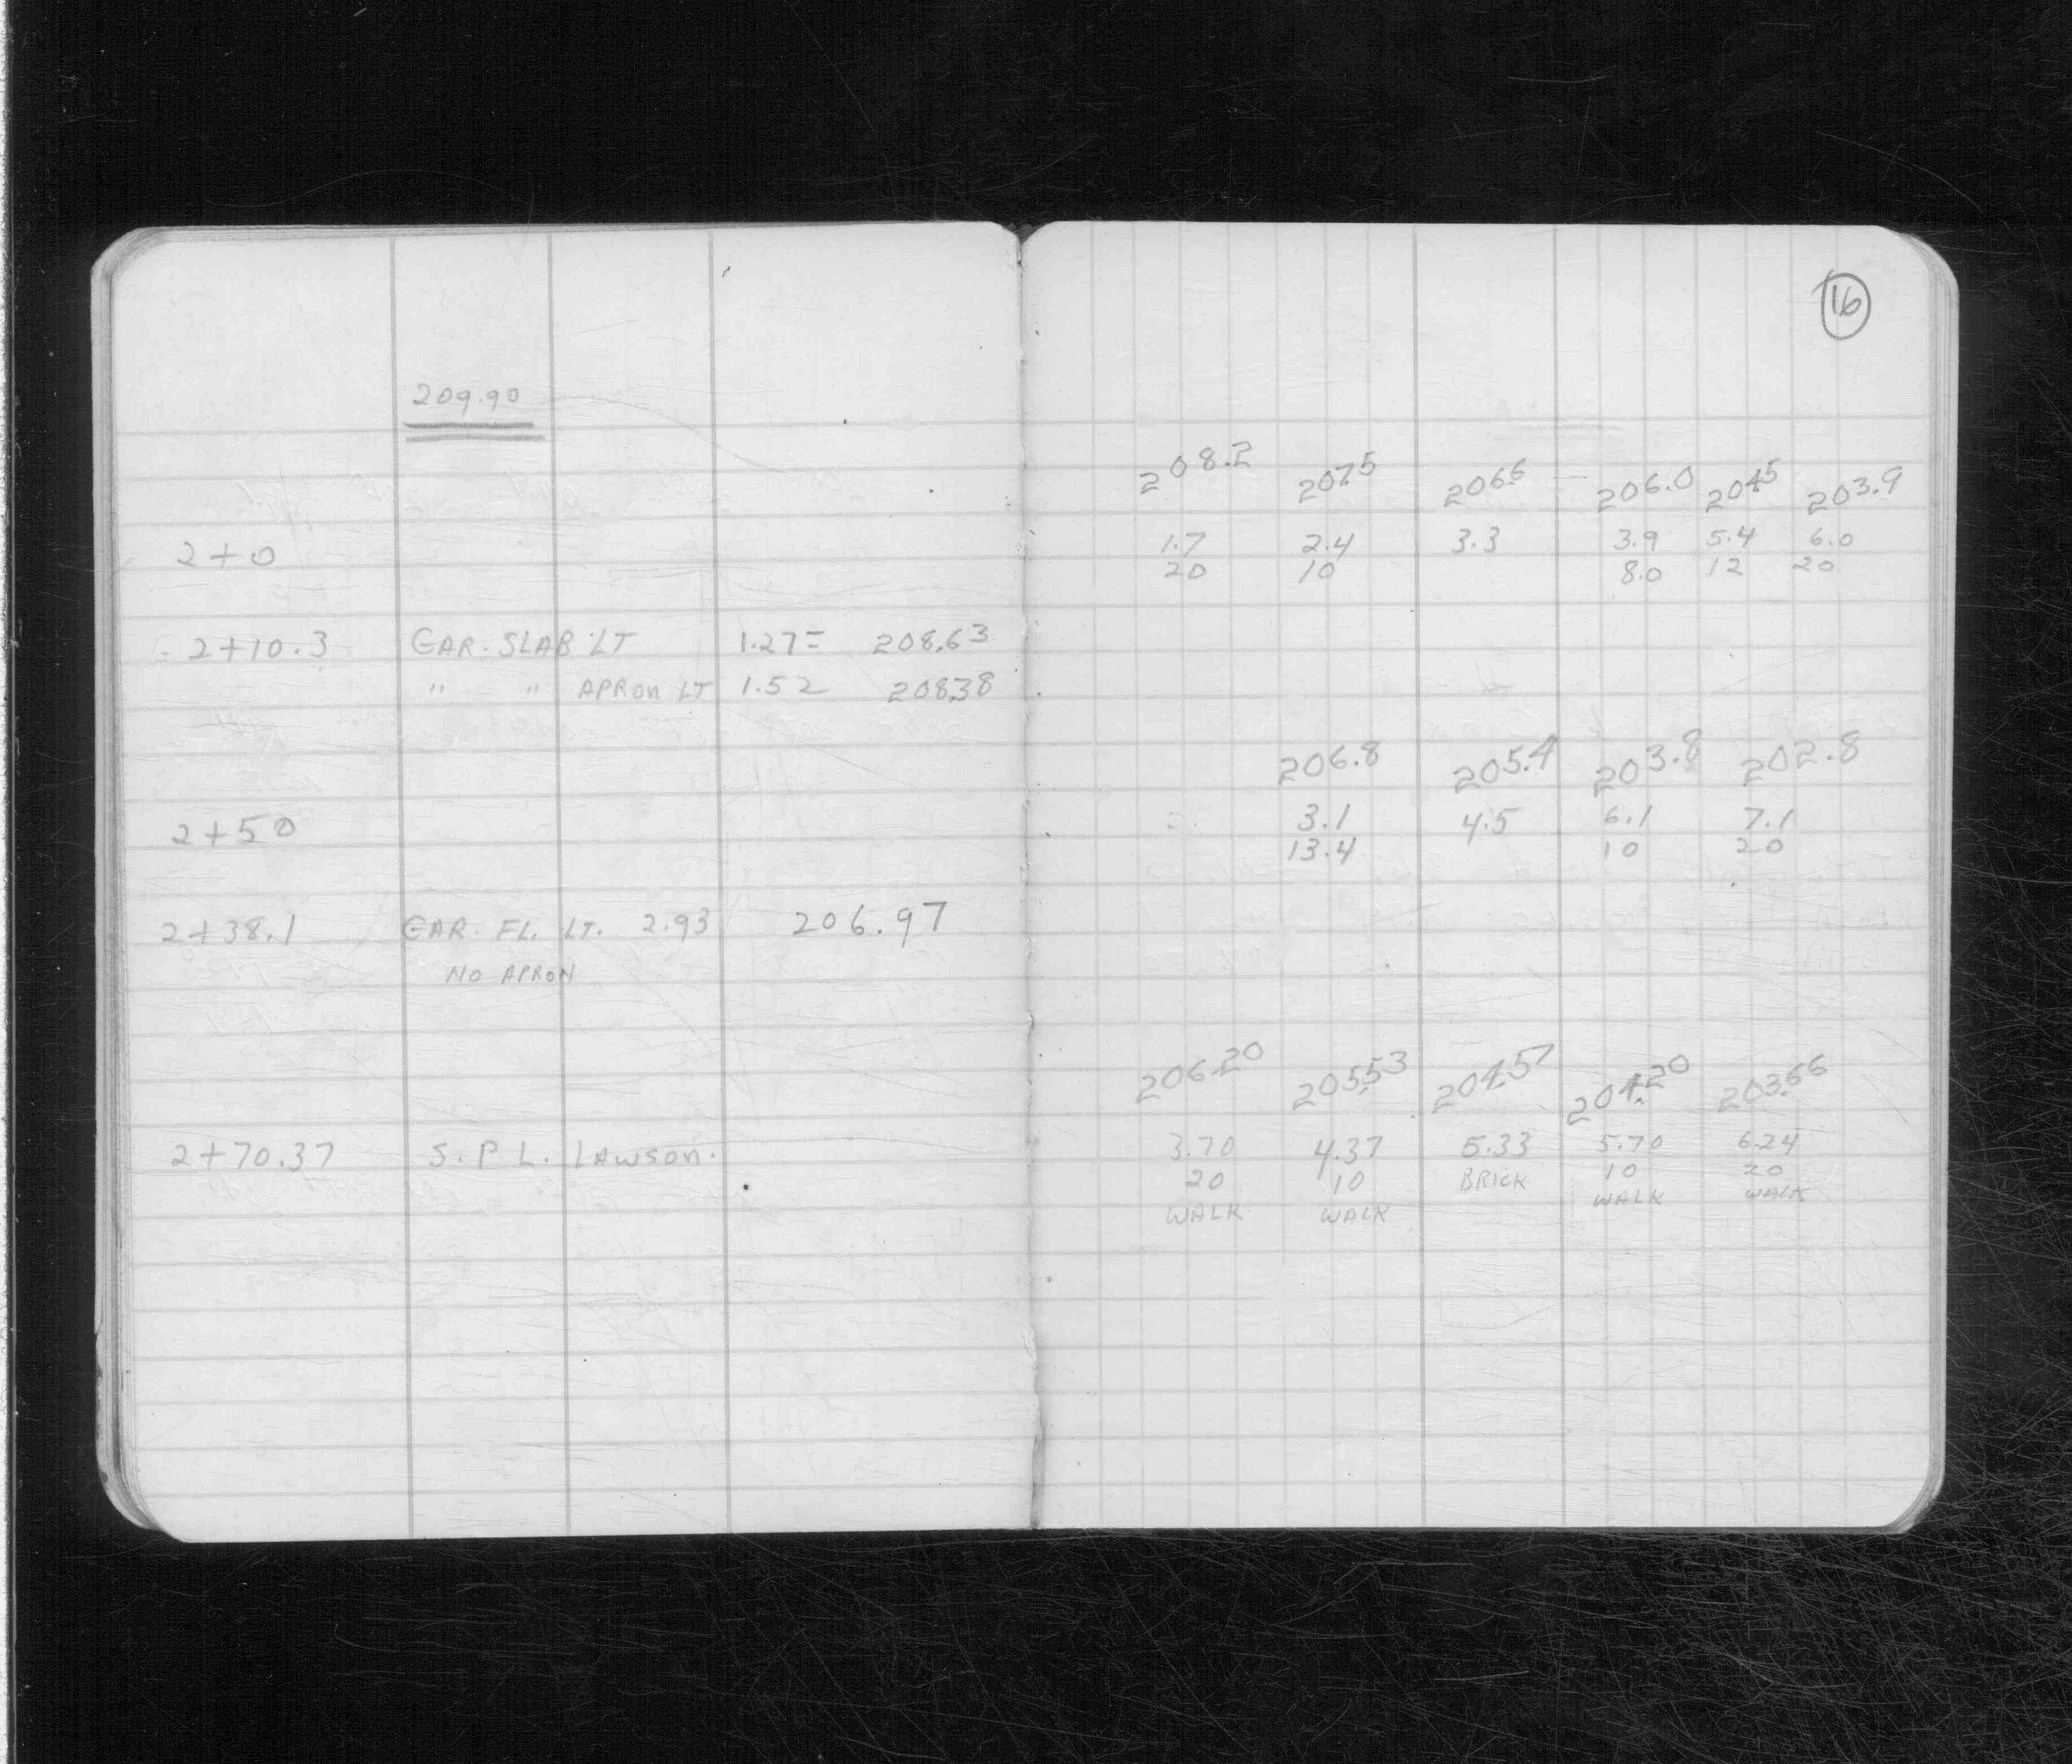 16
209.90
208.2 207.5 206.6 206.0 204.5 203.9
2+0
1.7 2.4 3.3 3.9 5.4 6.0
20 10 8.0 12 20
2+10.3 GAR. SLAB LT 1.27= 208.63
" " APRON LT 1.52 208.38
206.8 205.4 203.8 202.8
2+50
3.1 4.5 6.1 7.1
13.4 10 20
2+38.1 GAR. FL. LT. 2.93 206.97
NO APRON
206.20 205.53 204.57 204.20 203.66
2+70.37 S.P.L. LAWSON.
3.70 4.37 5.33 5.70 6.24
20 10 BRICK 10 20
WALK WALK WALK WALK